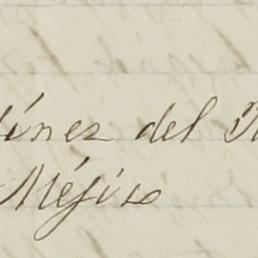 ínez del
Méjico